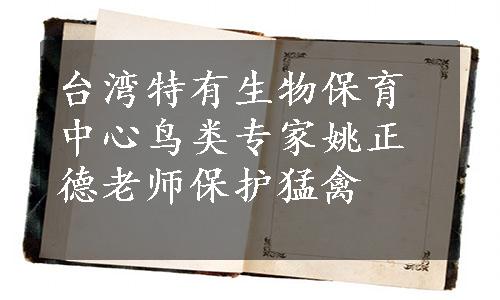 台湾特有生物保育
中心鸟类专家姚正
德老师保护猛禽